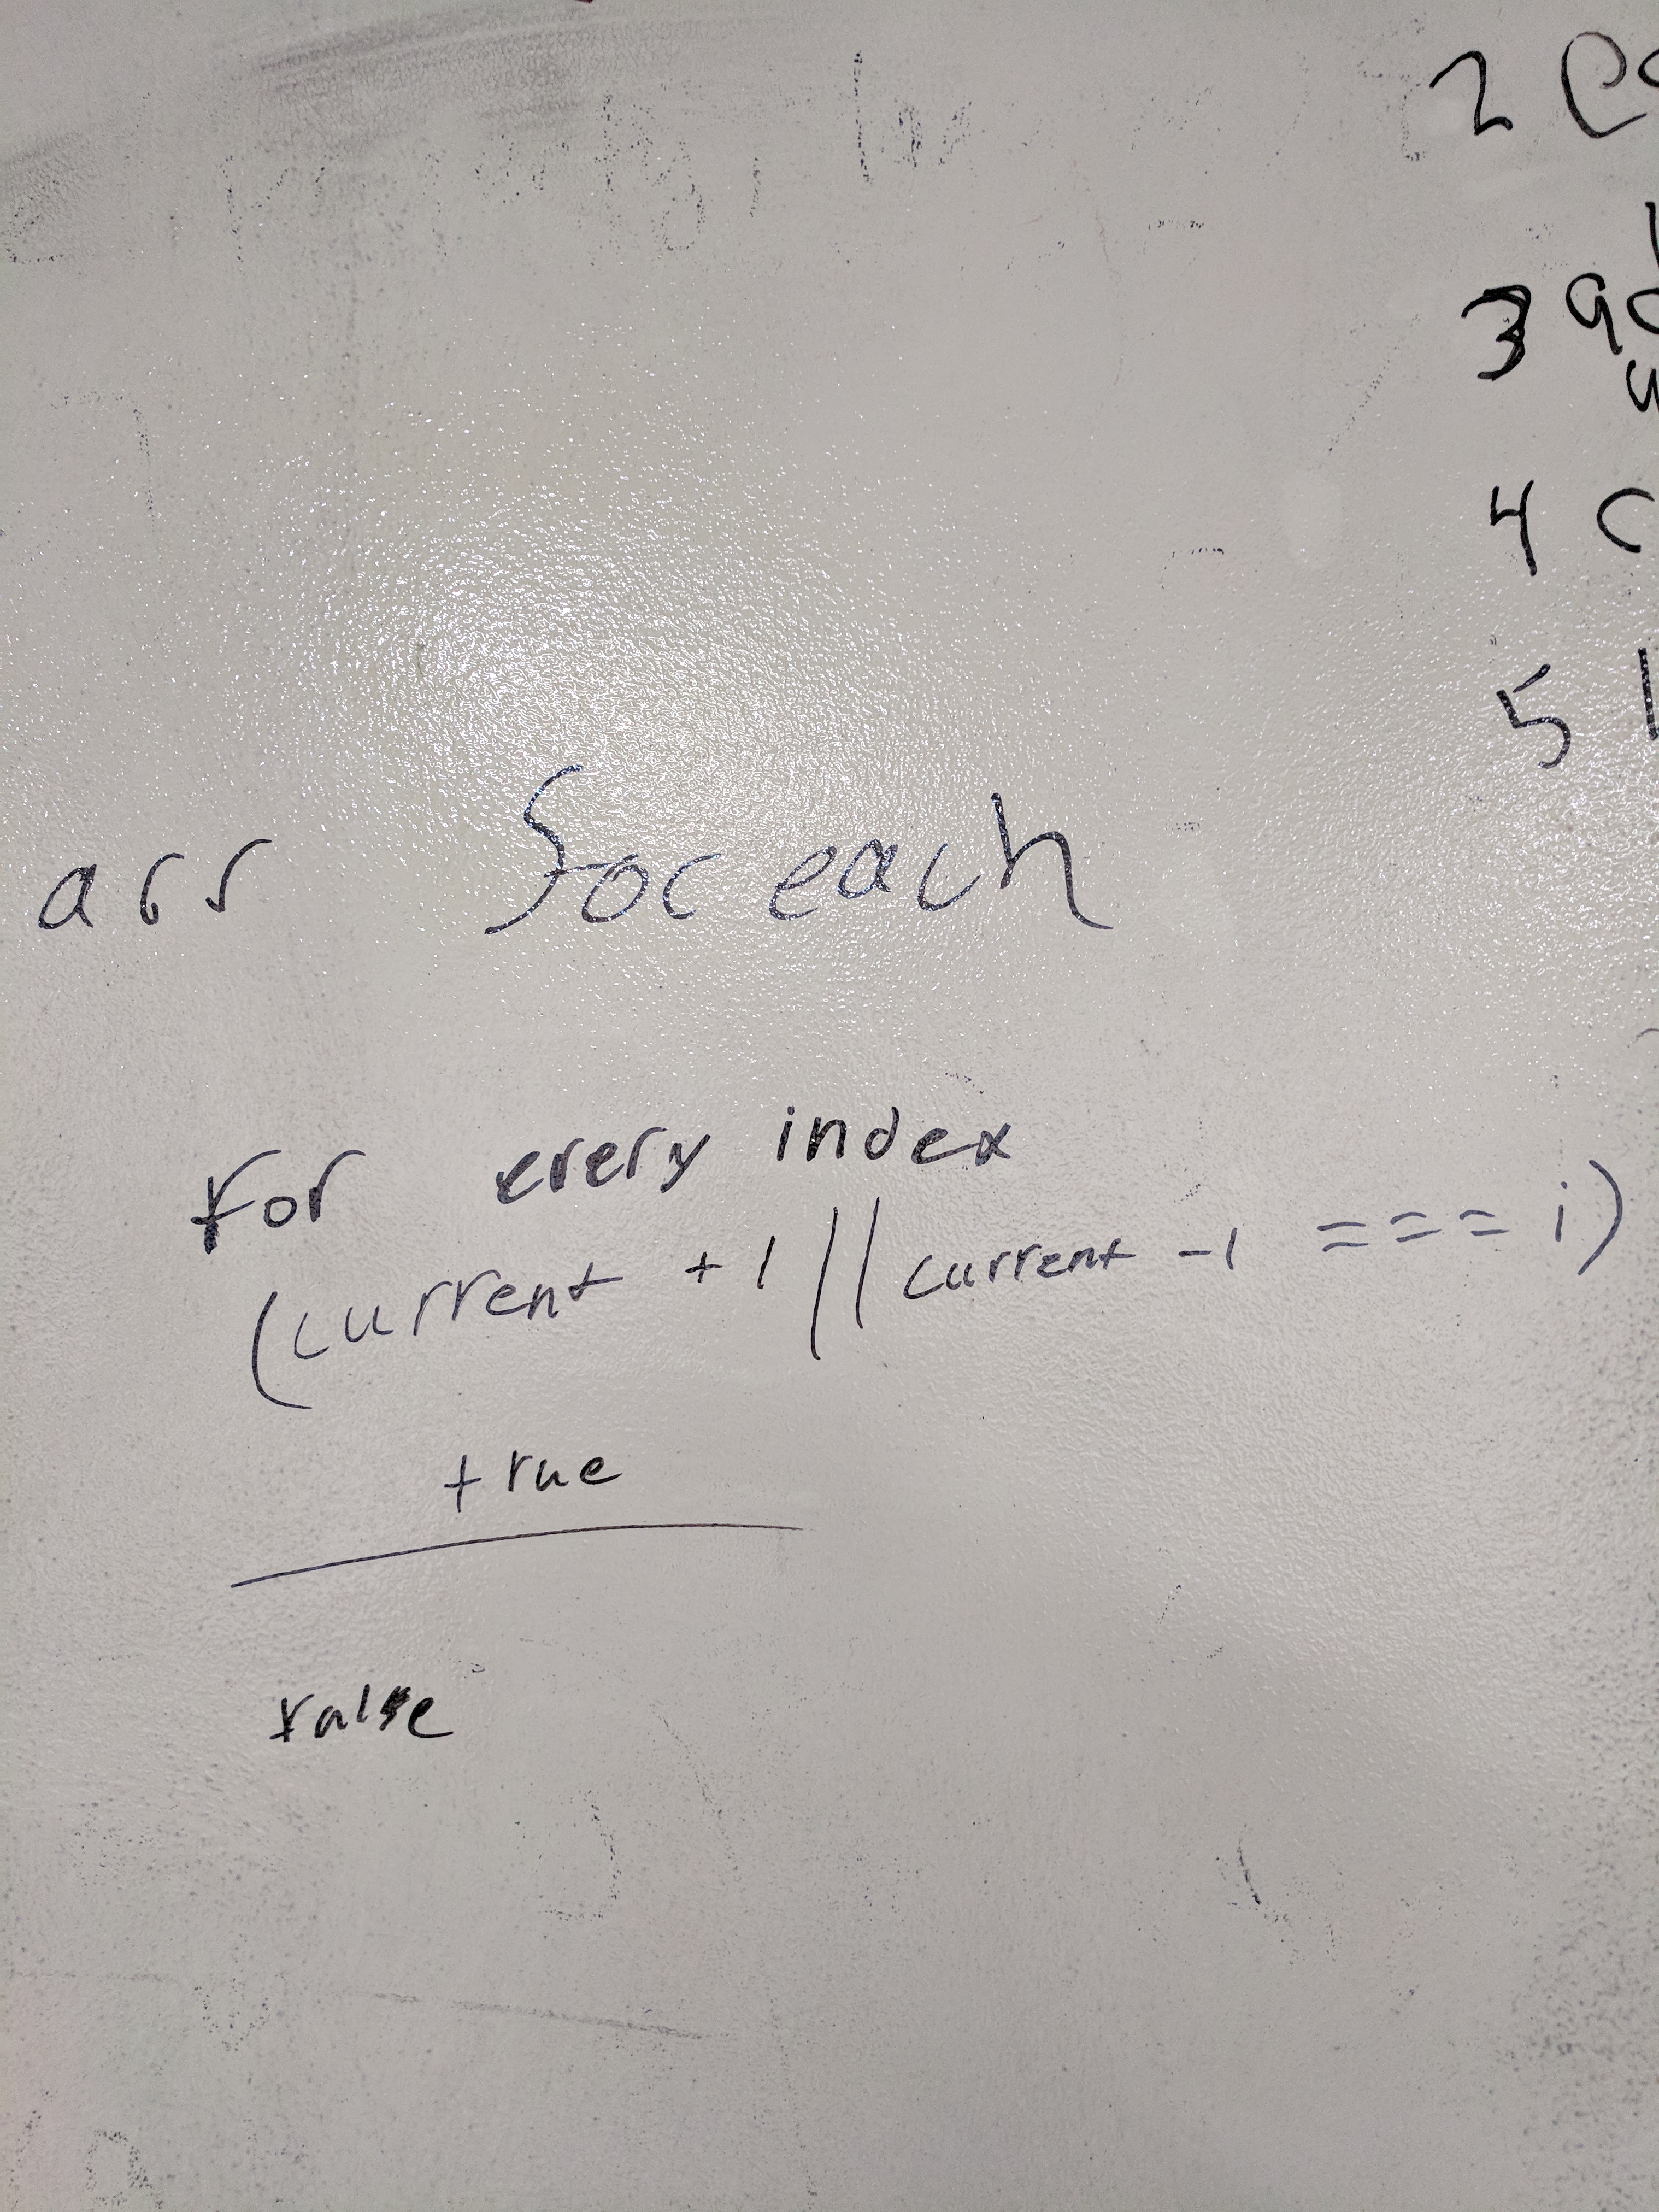 2
3
4 c
5
arr foreach
for every index
(current +1 || current -1 === i)
true
false